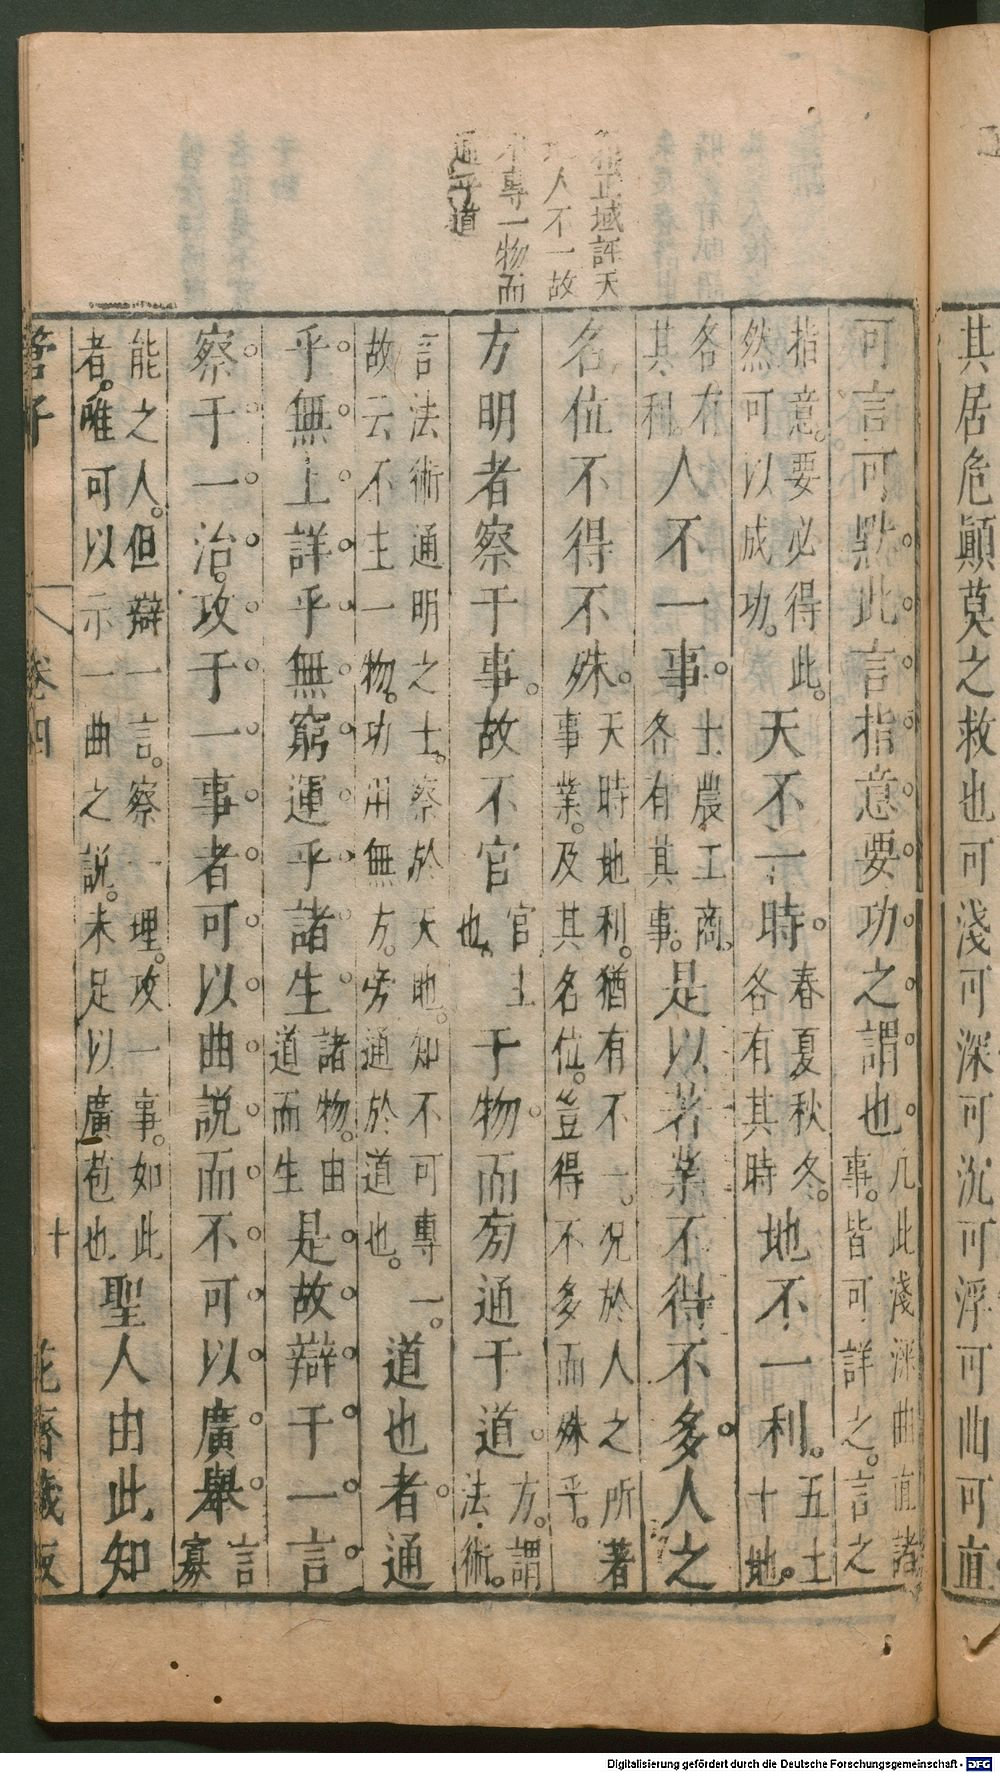 其居危顚莫之救也可淺可深可沉可浮可曲可直
正域評天
人不一故
不專一物而
通乎道
可言可默此言指意要功之謂也凡此淺深曲直諸事。皆可詳之。言之
指意。要必得此。然可以成功。天不一時。春夏秋冬。各有其時地不一利。五土十地。
各有其利。人不一事。士農工商。各有其事。是以著業不得不多人之
名位不得不殊。天時地利。猶有不一。况於人之所著事業。及其名位。豈得不多而殊乎。
方明者察于事。故不官官主也。于物。而旁通于道。方。謂法術。
言法術通明之士。察於天地。知不可專一。故云不主一物。功用無方。旁通於道也。道也者。通
乎無上詳乎無窮運乎諸生。諸物。由道而生是故辯于一言。
察于一治。攻于一事者可以曲說而不可以廣舉言寡
能之人。但辯一言。察一理。攻一事。如此者。唯可以示一曲之說。未足以廣苞也聖人由此知
管子
卷四
十
花齋藏板
Digitalisierung gefördert durch die Deutsche Forschungsgemeinschaft - DFG